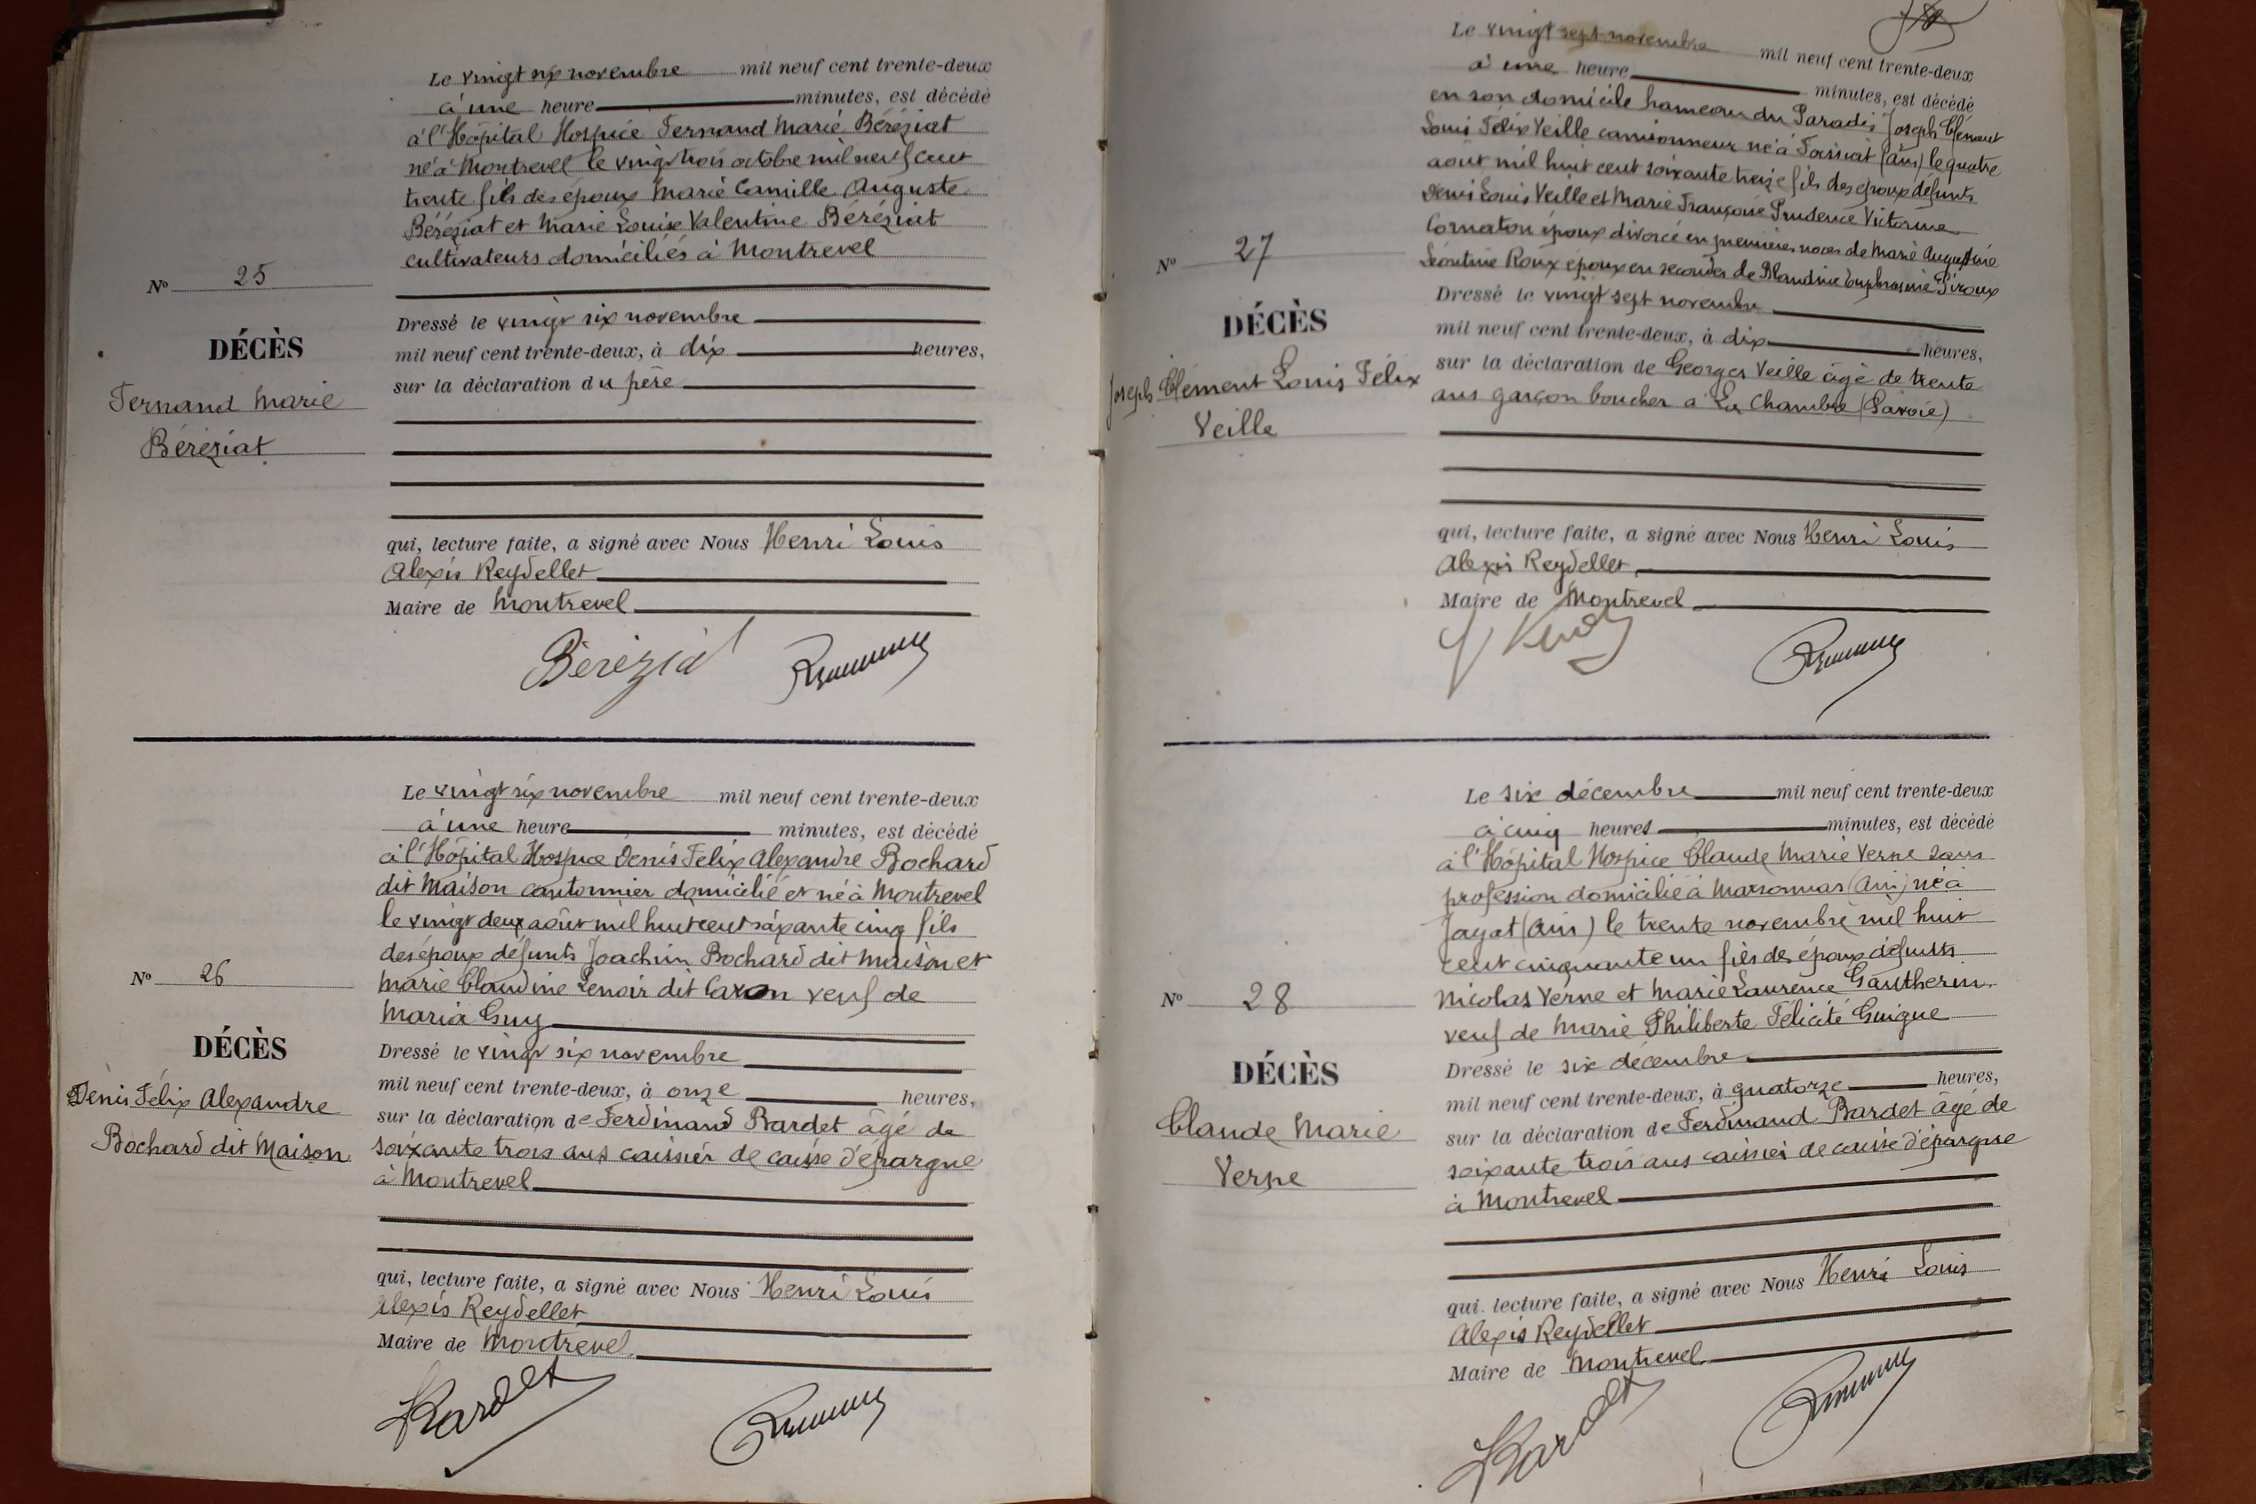 Le vingt six novembre mil neuf cent trente-deux
à une heure minutes, est décédé
à l'Hôpital Hospice Fernand Marie Béréziat
né à Montrevel le vingt trois octobre mil neuf cent
trente fils des époux Marie Camille Auguste
Béréziat et Marie Louise Valentine Béréziat
cultivateurs domiciliés à Montrevel
N° 25
DÉCÈS
Fernand Marie
Béréziat
Dressé le vingt six novembre
mil neuf cent trente-deux, à dix heures,
sur la déclaration du père
qui, lecture faite, a signé avec Nous Henri Louis
Alexis Reydellet
Maire de Montrevel
Béréziat
Le vingt six novembre mil neuf cent trente-deux
à une heure minutes, est décédé
à l'Hôpital Hospice Denis Felix Alexandre Bochard
dit Maison cantonnier domicilié et né à Montrevel
le vingt deux août mil huit cent soixante cinq fils
des époux défunts Joachim Bochard dit Maison et
Marie Claudine Lenoir dit Caron veuf de
Maria Guy
N° 26
DÉCÈS
Denis Félix Alexandre
Bochard dit Maison
Dressé le vingt six novembre
mil neuf cent trente-deux, à onze heures,
sur la déclaration de Ferdinand Bardet âgé de
soixante trois ans caissier de caisse d'épargne
à Montrevel
qui, lecture faite, a signé avec Nous Henri Louis
Alexis Reydellet
Maire de Montrevel
Bardet
Le vingt sept novembre mil neuf cent trente-deux
à une heure minutes, est décédé
en son domicile hameau du Paradis Joseph Clément
Louis Félix Veille camionneur né à Foissiat (Ain) le quatre
août mil huit cent soixante treize fils des époux défunts
Denis Louis Veille et Marie Françoise Prudence Victorine
Cornaton époux divorcé en premières noces de Marie Augustine
Léontine Roux époux en secondes de Blandine Euphrasine Piroux
N° 27
DÉCÈS
Joseph Clément Louis Félix
Veille
Dressé le vingt sept novembre
mil neuf cent trente-deux, à dix heures,
sur la déclaration de Georges Veille âgé de trente
ans garçon boucher à La Chambre (Savoie)
qui, lecture faite, a signé avec Nous Henri Louis
Alexis Reydellet
Maire de Montrevel
Le six décembre mil neuf cent trente-deux
à cinq heures minutes, est décédé
à l'Hôpital Hospice Claude Marie Verne sans
profession domicilié à Marsonnas (Ain) né à
Jayat (Ain) le trente novembre mil huit
cent cinquante un fils des époux défunts
Nicolas Verne et Marie Laurence Gautherin
veuf de Marie Philiberte Félicité Guigue
N° 28
DÉCÈS
Claude Marie
Verne
Dressé le six décembre
mil neuf cent trente-deux, à quatorze heures,
sur la déclaration de Ferdinand Bardet âgé de
soixante trois ans caissier de caisse d'épargne
à Montrevel
qui, lecture faite, a signé avec Nous Henri Louis
Alexis Reydellet
Maire de Montrevel
Bardet